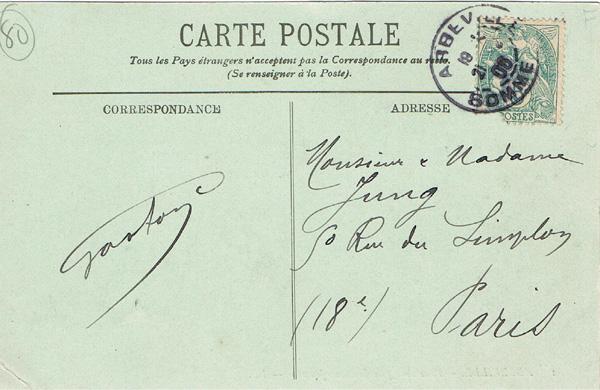 80
CARTE POSTALE
Tous les Pays étrangers n'acceptent pas la Correspondance au recto.
(Se renseigner à la Poste).
ABBEVILLE
SOMME
POSTES
CORRESPONDANCE
ADRESSE
Monsieur & Madame
Jung
50 Rue du Simplon
(18e)
Paris